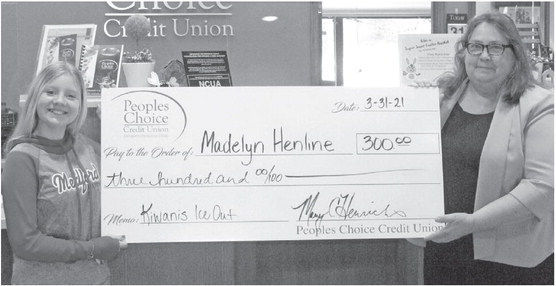 Choice
Credit Union
Today
31
NCUA
Peoples
Choice
Credit Union
Date: 3-31-21
Pay to the Order of: Madelyn Henline 300 00
three hundred and 00/100
Memo: Kiwanis Ice Out Mary C Henrichs
Peoples Choice Credit Union
Medford